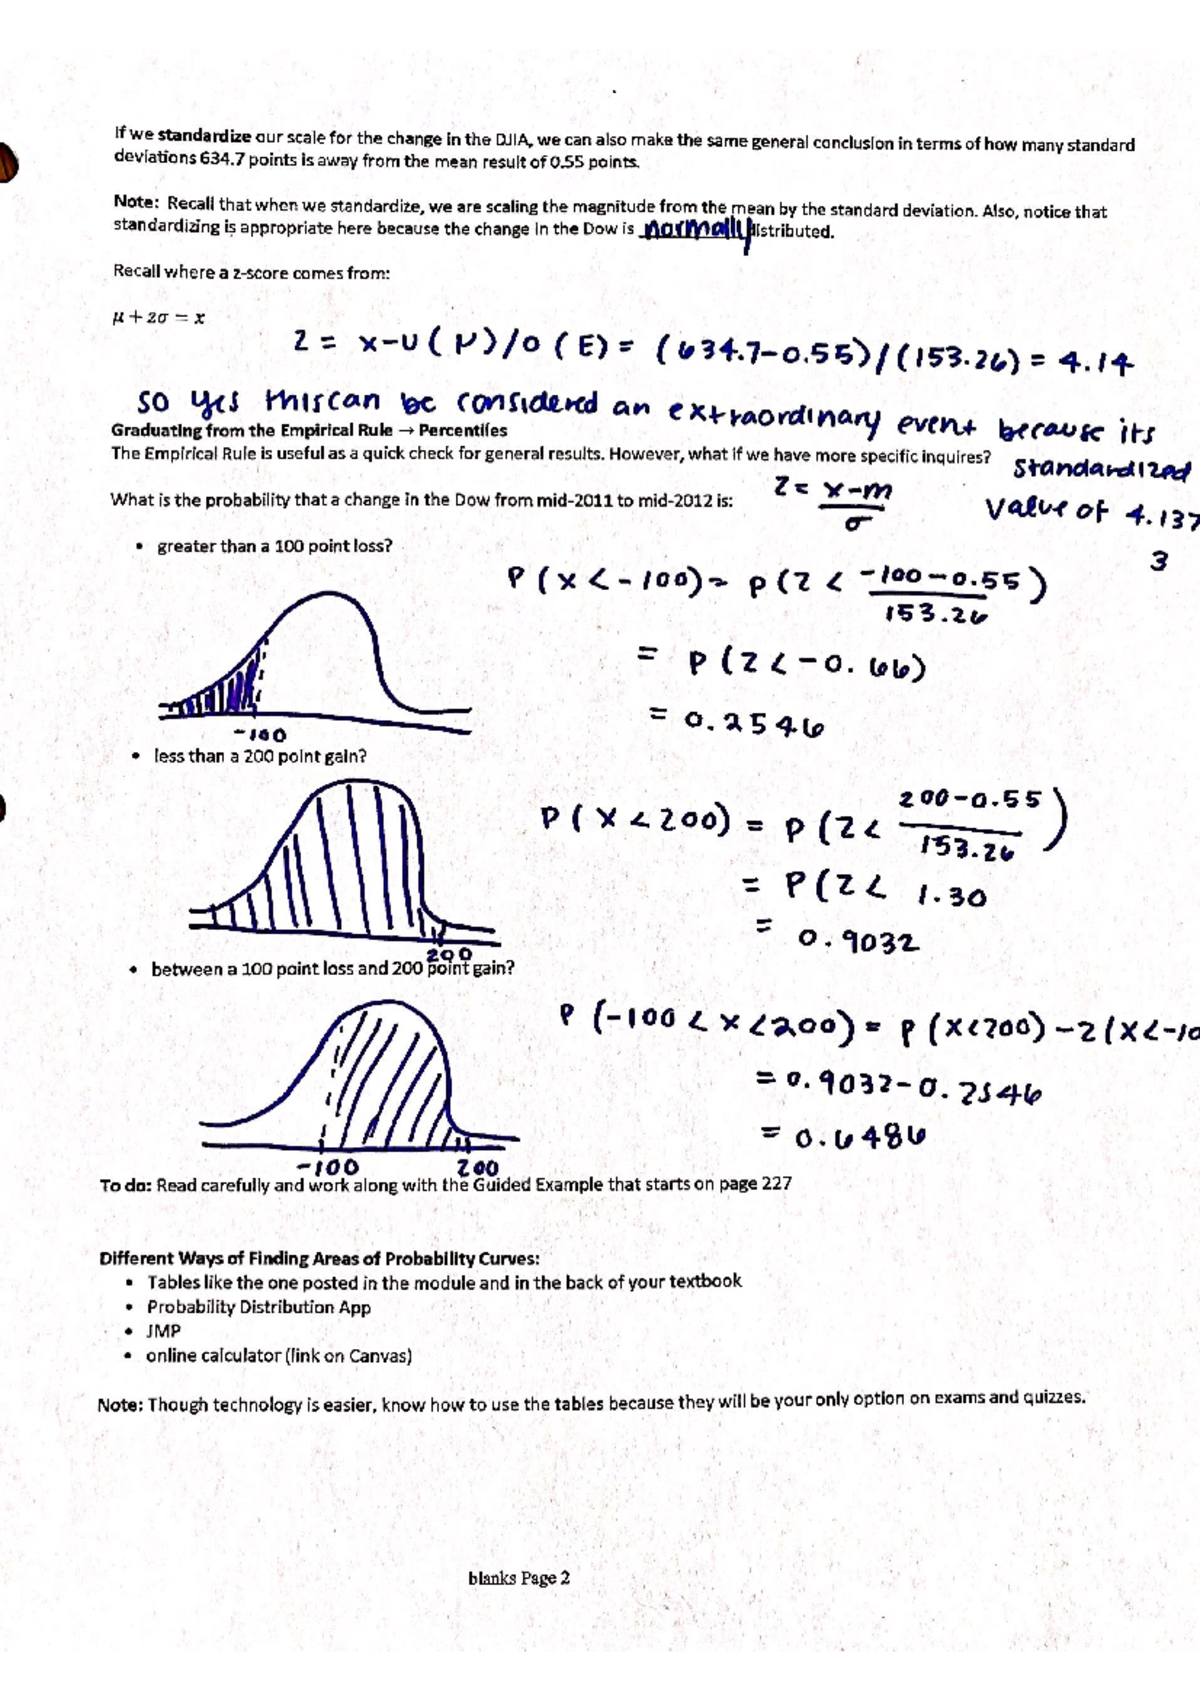 If we standardize our scale for the change in the DJIA, we can also make the same general conclusion in terms of how many standard
deviations 634.7 points is away from the mean result of 0.55 points.
Note: Recall that when we standardize, we are scaling the magnitude from the mean by the standard deviation. Also, notice that
standardizing is appropriate here because the change in the Dow is normally distributed.
Recall where a z-score comes from:
μ + zσ = x
z = x-u(μ)/o(E) = (634.7-0.55)/(153.26) = 4.14
so yes this can be considered an extraordinary event because its
Graduating from the Empirical Rule → Percentiles
The Empirical Rule is useful as a quick check for general results. However, what if we have more specific inquires?
standardized
What is the probability that a change in the Dow from mid-2011 to mid-2012 is:
z = x-m
σ
value of 4.137
3
• greater than a 100 point loss?
P(x<-100) = P(z < -100-0.55)
153.26
= P(z<-0.66)
= 0.2546
-100
• less than a 200 point gain?
P(x<200) = P(z< 200-0.55)
153.26
= P(z< 1.30
= 0.9032
200
• between a 100 point loss and 200 point gain?
P(-100<x<200) = P(x<200)-2(x<-10
= 0.9032-0.2546
= 0.6486
-100 200
To do: Read carefully and work along with the Guided Example that starts on page 227
Different Ways of Finding Areas of Probability Curves:
• Tables like the one posted in the module and in the back of your textbook
• Probability Distribution App
• JMP
• online calculator (link on Canvas)
Note: Though technology is easier, know how to use the tables because they will be your only option on exams and quizzes.
blanks Page 2